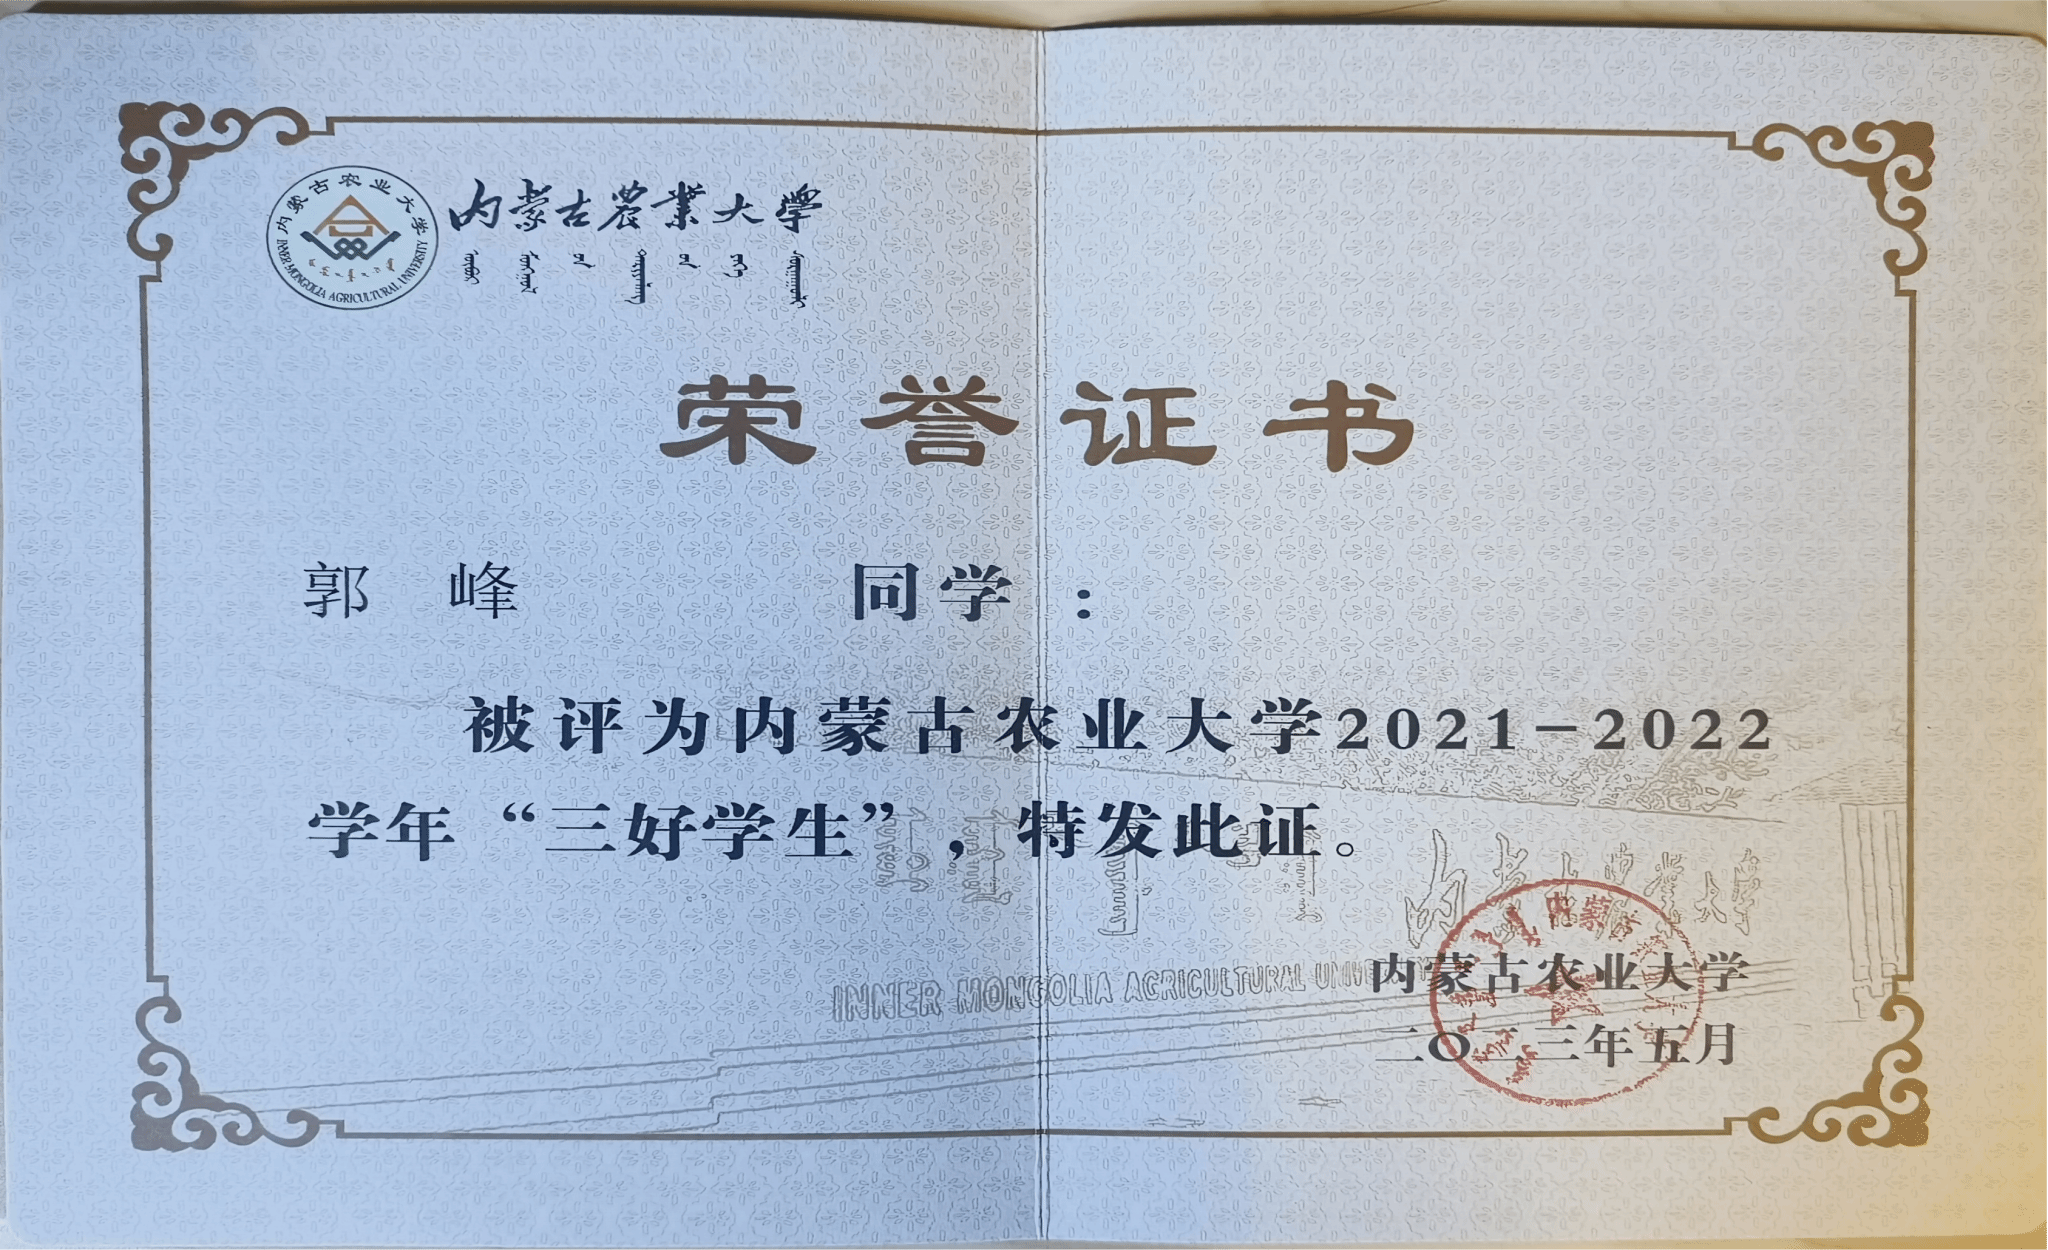 内蒙古农业大学
INNER MONGOLIA AGRICULTURAL UNIVERSITY
内蒙古農業大学
荣誉证书
郭 峰 同学：
被评为内蒙古农业大学2021-2022
学年“三好学生”，特发此证。
INNER MONGOLIA AGRICULTURAL UNIVE
内蒙古农业大学
二〇二三年五月